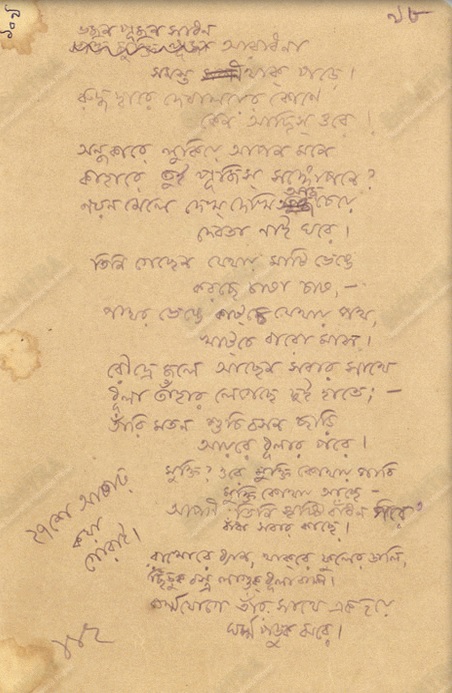 ভজন পূজন সাধন
আরাধনা
সমস্ত থাক্ পড়ে।
রুদ্ধদ্বারে দেবালয়ের কোণে
কেন আছিস্ ওরে!
অন্ধকারে লুকিয়ে আপন মনে
কাহারে তুই পূজিস্ সঙ্গোপনে?
নয়ন মেলে দেখ্ দেখি তুই চেয়ে
দেবতা নাই ঘরে।
তিনি গেছেন যেথায় মাটি ভেঙে
করচে চাষা চাষ,—
পাথর ভেঙে কাটচে যেথায় পথ,
খাটচে বারো মাস।
রৌদ্রে জলে আছেন সবার সাথে
ধূলা তাঁহার লেগেছে দুই হাতে;—
তাঁরি মতন শুচি বসন ছাড়ি
আয়রে ধূলার পরে।
মুক্তি? ওরে মুক্তি কোথায় পাবি
মুক্তি কোথায় আছে—
আপনি তিনি সৃষ্টি বাঁধন পরে
বাঁধা সবার কাছে।
রাখোরে ধ্যান, থাক্‌রে ফুলের ডালি,
ছিঁড়ুক বস্ত্র লাগুক ধূলা বালি।
কর্ম্মযোগে তাঁর সাথে এক হয়ে
ঘর্ম্ম পড়ুক ঝরে।
২৭শে আষাঢ়
কয়া
গোরাই।